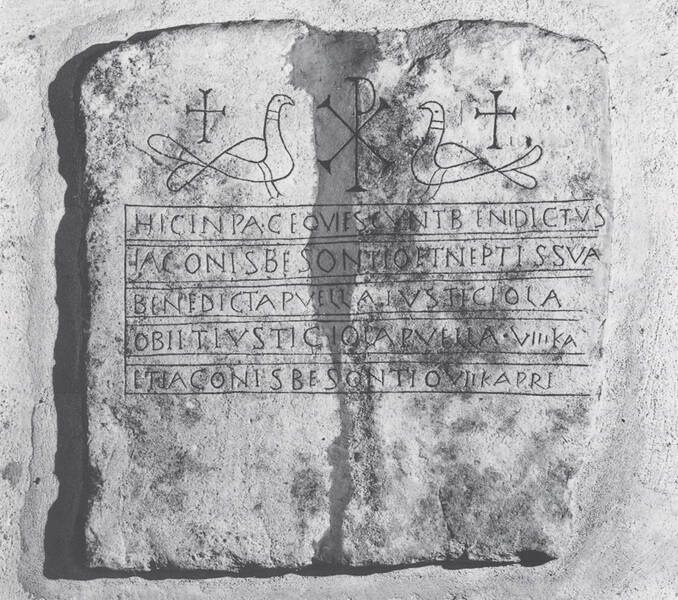 HICINPACEQVIESCVNTBENIDICTVS
IACONISBESONTIOETNEPTISSVA
BENEDICTAPVELLAIVSTICIOLA
OBIITIVSTICIOLAPVELLA·VIIIKA
ETIACONISBESONTIOVIIKAPRI